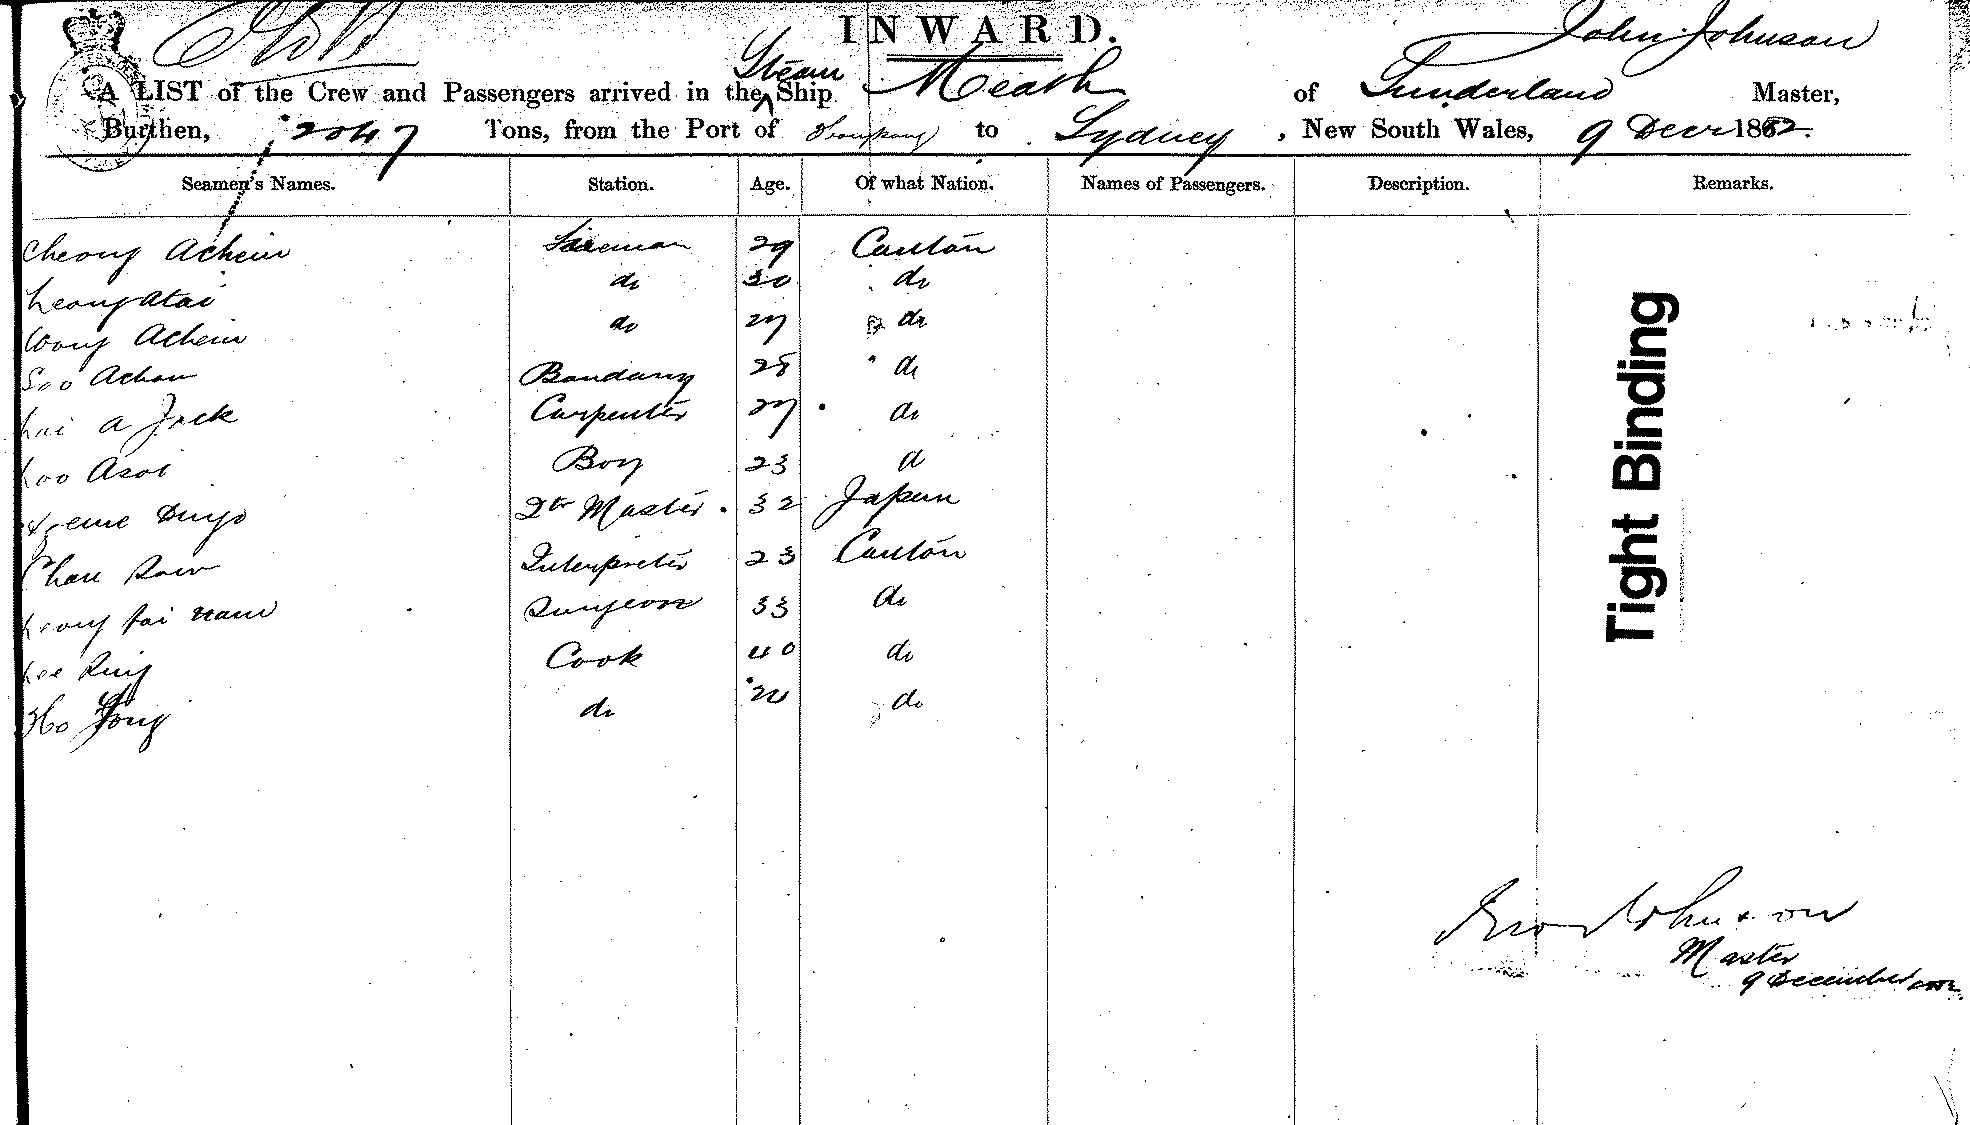 INWARD.
John Johnson
A LIST of the Crew and Passengers arrived in the Steam Ship Meath of Sunderland Master,
Burthen, 2047 Tons, from the Port of Hongkong to Sydney, New South Wales, 9 Decr 1882.
Seamen's Names. Station. Age. Of what Nation. Names of Passengers. Description. Remarks.
Cheong Achein Fireman 29 Canton
Leong Atai do 30 do
Wong Achein do 27 do
Soo Achan 28 do
Lai A Jack Carpenter 27 do
Loo Asoi Boy 23 do
Qr Master 32 Japan
Chan Interpreter 23 Canton
Leong Surgeon 33 do
Lee Cook 40 do
Ho do do
Tight Binding
Johnson
Master
9 December